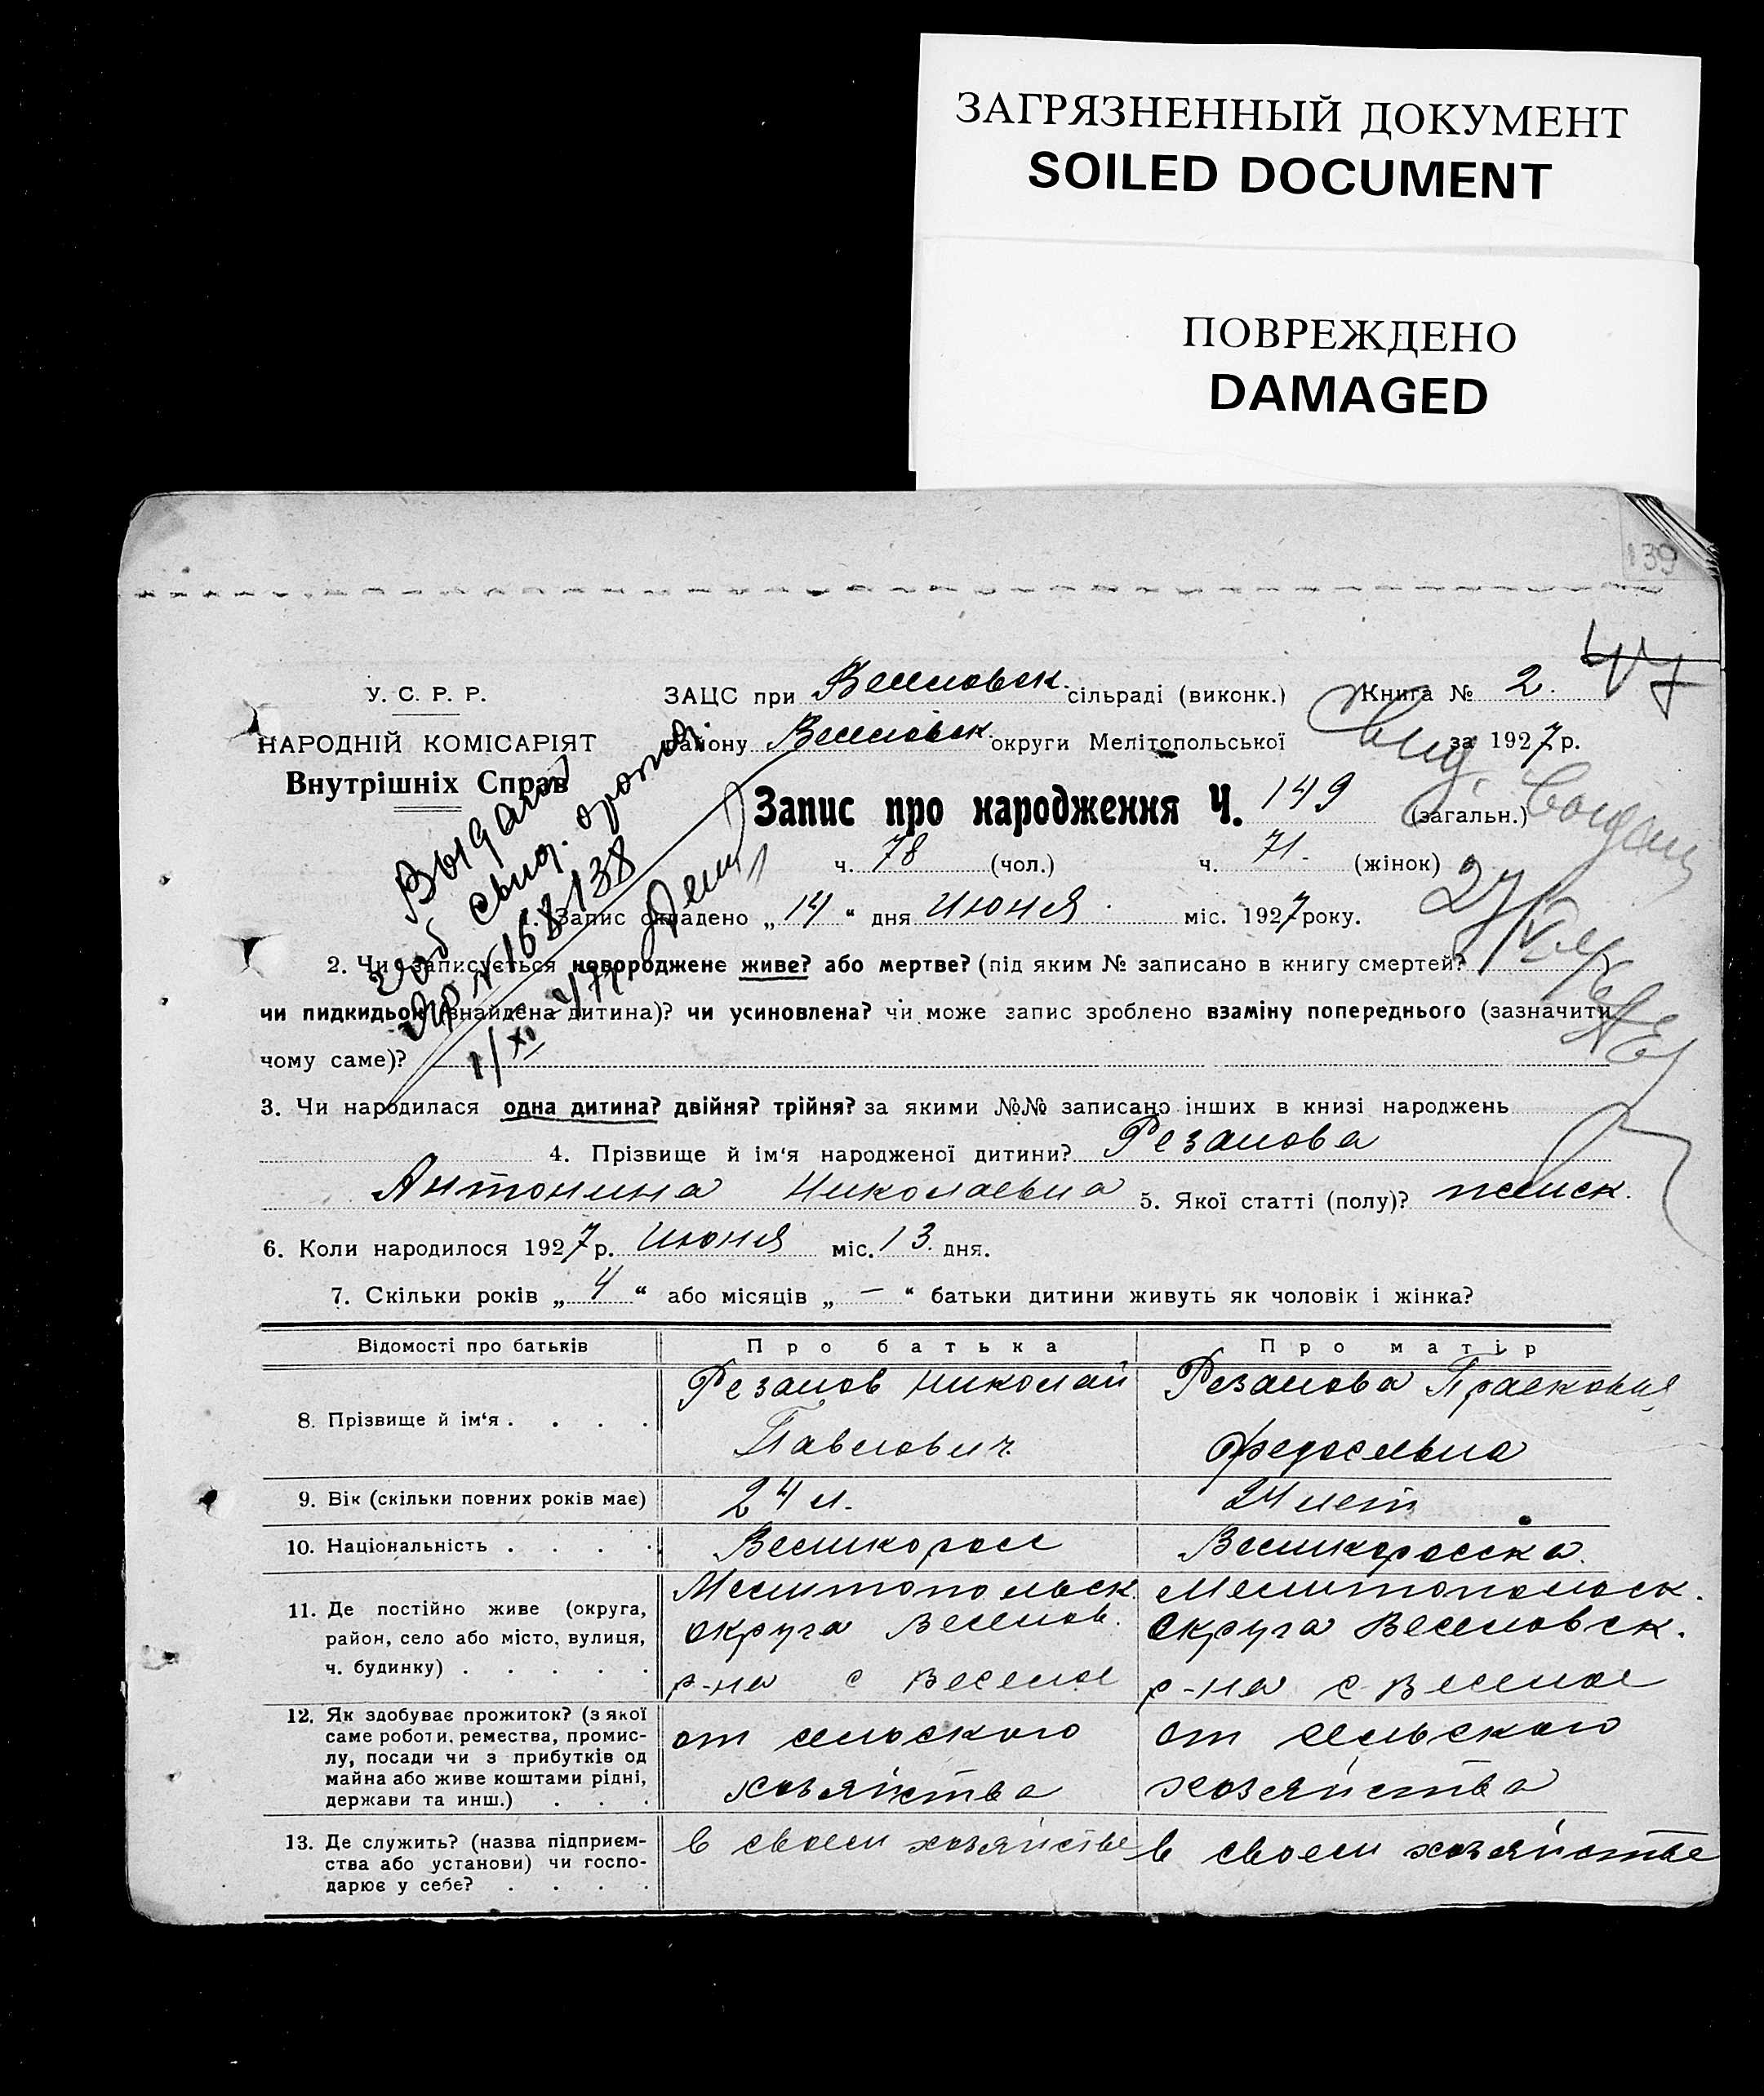 ЗАГРЯЗНЕННЫЙ ДОКУМЕНТ
SOILED DOCUMENT
ПОВРЕЖДЕНО
DAMAGED
139
У. С. Р. Р.
НАРОДНІЙ КОМІСАРІЯТ
Внутрішніх Справ
ЗАЦС при Веселовск. сільраді (виконк.) Книга № 2.
району Веселовск. округи Мелітопольської за 1927 р.
Запис про народження Ч. 149 (загальн.)
ч. 78 (чол.) ч. 71 (жінок)
Запис складено „14“ дня Июня міс. 1927 року.
Выдано
2. Чи записується новороджене живе? або мертве? (під яким № записано в книгу смертей?
чи пидкидьок (знайдена дитина)? чи усиновлена? чи може запис зроблено взаміну попереднього (зазначити
чому саме)?
3. Чи народилася одна дитина? двійня? трійня? за якими №№ записано інших в книзі народжень
4. Прізвище й ім‘я народженої дитини? Резанова
Антонина Николаевна 5. Якої статті (полу)? женск.
6. Коли народилося 1927 р. Июня міс. 13 дня.
7. Скільки років „4“ або місяців „—“ батьки дитини живуть як чоловік і жінка?
Відомості про батьків Про батька Про матір
8. Прізвище й ім‘я . . . .
Резанов Николай
Павлович
Резанова Прасковия
Федосеевна
9. Вік (скільки повних років має) 24 л. 24 лет
10. Національність . . . . Великоросс Великоросска
11. Де постійно живе (округа,
район, село або місто, вулиця,
ч. будинку) . . . . .
Мелитопольск.
округа Веселов.
р-на с Веселое
Мелитопольск.
округа Веселовск.
р-на с Веселое
12. Як здобуває прожиток? (з якої
саме роботи, ремества, промис-
лу, посади чи з прибутків од
майна або живе коштами рідні,
держави та инш.) . . .
от сельского
хозяйства
от сельского
хозяйства
13. Де служить? (назва підприєм-
ства або установи) чи госпо-
дарює у себе? . . . .
в своем хозяйстве
в своем хозяйстве